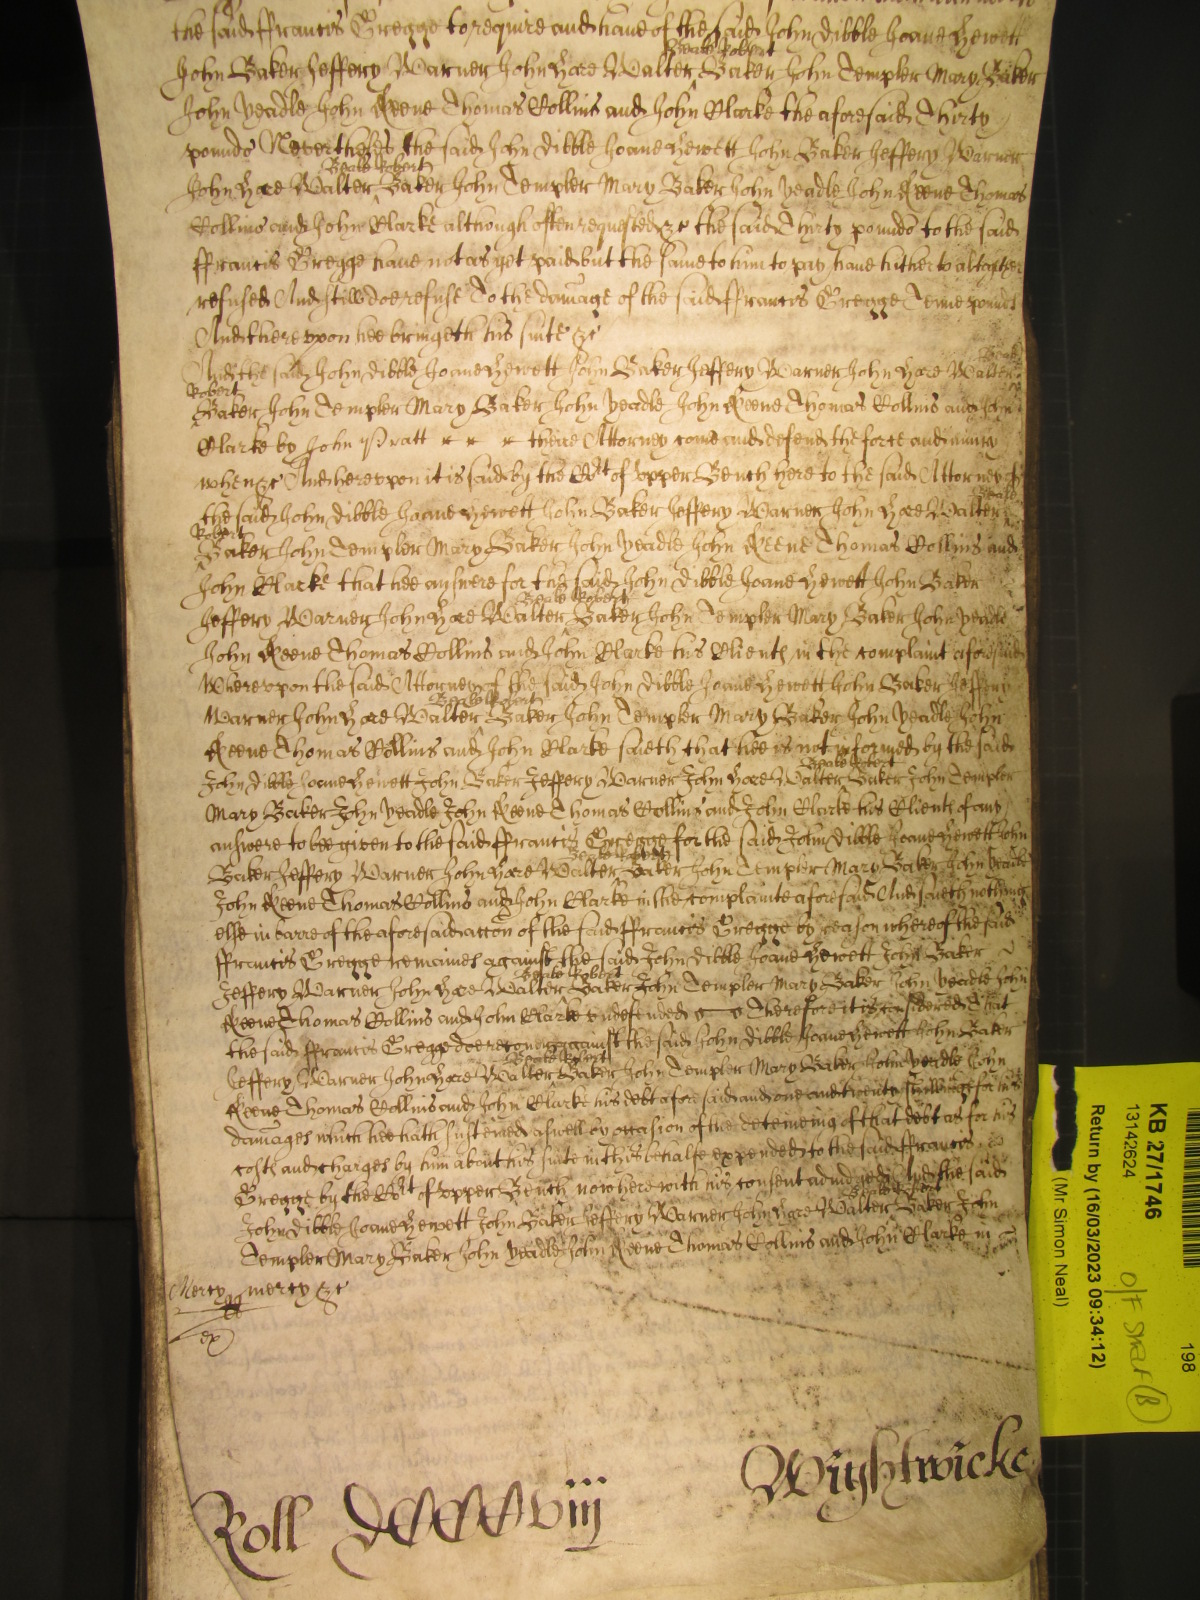 the said ffrancis Gregge to require and have of the said John Dibble Joane Hewett
Beale Robert
John Baker Jeffery Warner John Hore Walter Baker John Templer Mary Baker
John Yeadle John Keene Thomas Rollins and John Clarke the aforesaid Thirty
pounds Neverthelesse the said John Dibble Joane Hewett John Baker Jeffery Warner
Beale Robert
John Hore Walter Baker John Templer Mary Baker John Yeadle John Keene Thomas
Rollins and John Clarke although often requested &c the said Thirty pounds to the said
ffrancis Gregge have not as yet paid but the same to him to pay have hitherto altogether
refused And still doe refuse To the damage of the said ffrancis Gregge Tenne pounds
And thereupon hee bringeth his suite &c
And the said John Dibble Joane Hewett John Baker Jeffery Warner John Hore Walter Beale
Robert
Baker John Templer Mary Baker John Yeadle John Keene Thomas Rollins and John
Clarke by John Pratt their Attorney come and defend the force and iniury
when &c And hereupon it is said by the Co:rt of Upper Bench here to the said Attorney of
the said John Dibble Joane Hewett John Baker Jeffery Warner John Hore Walter Beale
Robert
Baker John Templer Mary Baker John Yeadle John Keene Thomas Rollins and
John Clarke that hee answere for the said John Dibble Joane Hewett John Baker
Beale Robert
Jeffery Warner John Hore Walter Baker John Templer Mary Baker John Yeadle
John Keene Thomas Rollins and John Clarke his Clients in the complaint aforesaid
Whereupon the said Attorney of the said John Dibble Joane Hewett John Baker Jeffery
Beale Robert
Warner John Hore Walter Baker John Templer Mary Baker John Yeadle John
Keene Thomas Rollins and John Clarke saieth that hee is not informed by the said
Beale Robert
John Dibble Joane Hewett John Baker Jeffery Warner John Hore Walter Baker John Templer
Mary Baker John Yeadle John Keene Thomas Rollins and John Clarke his Clients of any
answere to bee given to the said ffrancis Gregge for the said John Dibble Joane Hewett John
Beale Robert
Baker Jeffery Warner John Hore Walter Baker John Templer Mary Baker John Yeadle
John Keene Thomas Rollins and John Clarke in the complainte aforesaid And saieth nothing
else in barre of the aforesaid accon of the said ffrancis Gregge by reason whereof the said
ffrancis Gregge remaines against the said John Dibble Joane Hewett John Baker
Beale Robert
Jeffery Warner John Hore Walter Baker John Templer Mary Baker John Yeadle John
Keene Thomas Rollins and John Clarke undefended Therefore it is considered That
the said ffrancis Gregge doe recover against the said John Dibble Joane Hewett John Baker
Beale Robert
Jeffery Warner John Hore Walter Baker John Templer Mary Baker John Yeadle John
Keene Thomas Rollins and John Clarke his debt aforesaid and one and twenty shillings for his
damages which hee hath susteined aswell by occasion of the deteineing of that debt as for his
costs and charges by him about his suite in this behalfe expended to the said ffrancis
Gregge by the Co:rt of Upper Bench now here with his consent adiudged And the said
Beale Robert
John Dibble Joane Hewett John Baker Jeffery Warner John Hore Walter Baker John
Templer Mary Baker John Yeadle John Keene Thomas Rollins and John Clarke in
Mercy mercy &c
Roll DCCCCviij
Wightwicke
KB 27/1746
13142624
Return by (16/03/2023 09:34:12)
(Mr Simon Neal)
198
O/F Shelf B